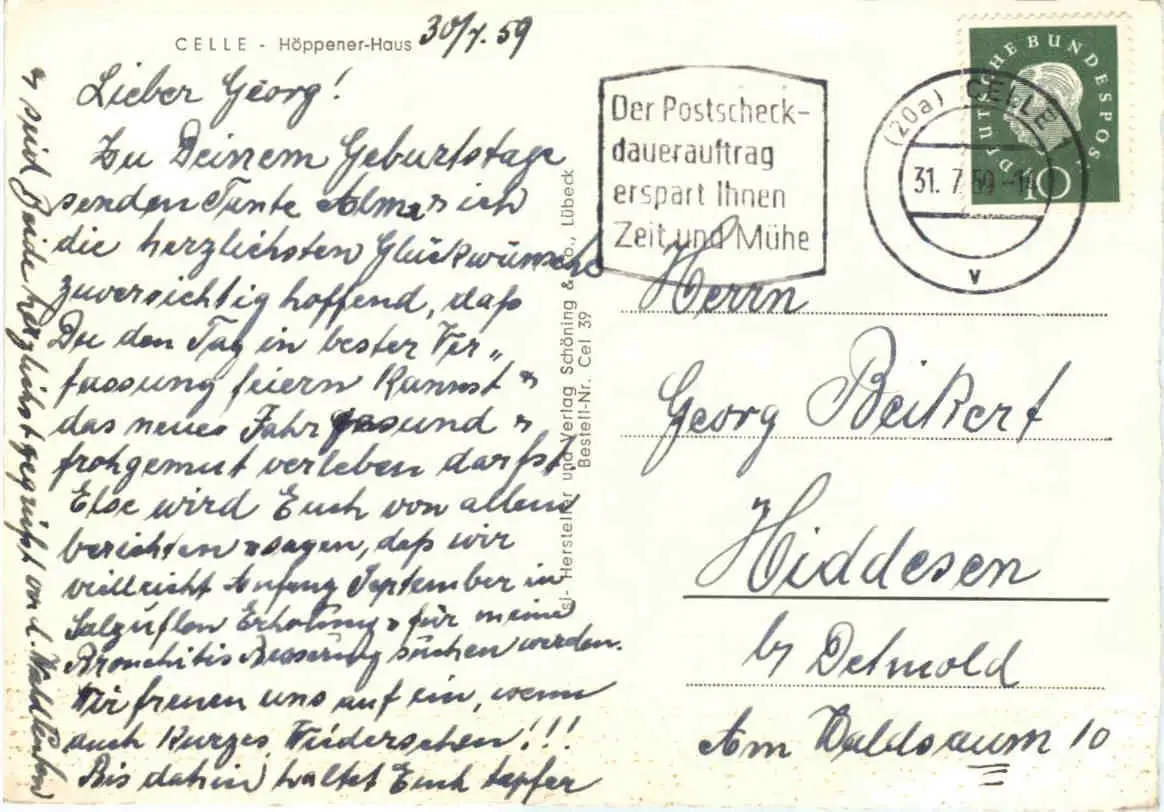 CELLE - Höppener-Haus
30/7. 59
Lieber Georg!
Zu Deinem Geburtstage
senden Tante Alma u ich
die herzlichsten Glückwünsche
zuversichtig hoffend, daß
Du den Tag in bester Ver„
fassung feiern kannst u
das neue Jahr gesund u
frohgemut verleben darfst.
Else wird Euch von allem
berichten u sagen, daß wir
vielleicht Anfang September in
Salzuflen Erholung u für meine
Bronchitis Besserung suchen werden.
Wir freuen uns auf ein, wenn
auch kurzes Wiedersehen!!!
Bis dahin haltet Euch tapfer
u seid beide herzlichst gegrüßt von d.
Hersteller und Verlag Schöning & Co., Lübeck
Bestell-Nr. Cel 39
Der Postscheck-
dauerauftrag
erspart Ihnen
Zeit und Mühe
(20a) CELLE 1
31. 7. 59 -14
v
DEUTSCHE BUNDESPOST
10
Herrn
Georg Beikert
Hiddesen
by Detmold
Am Waldsaum 10